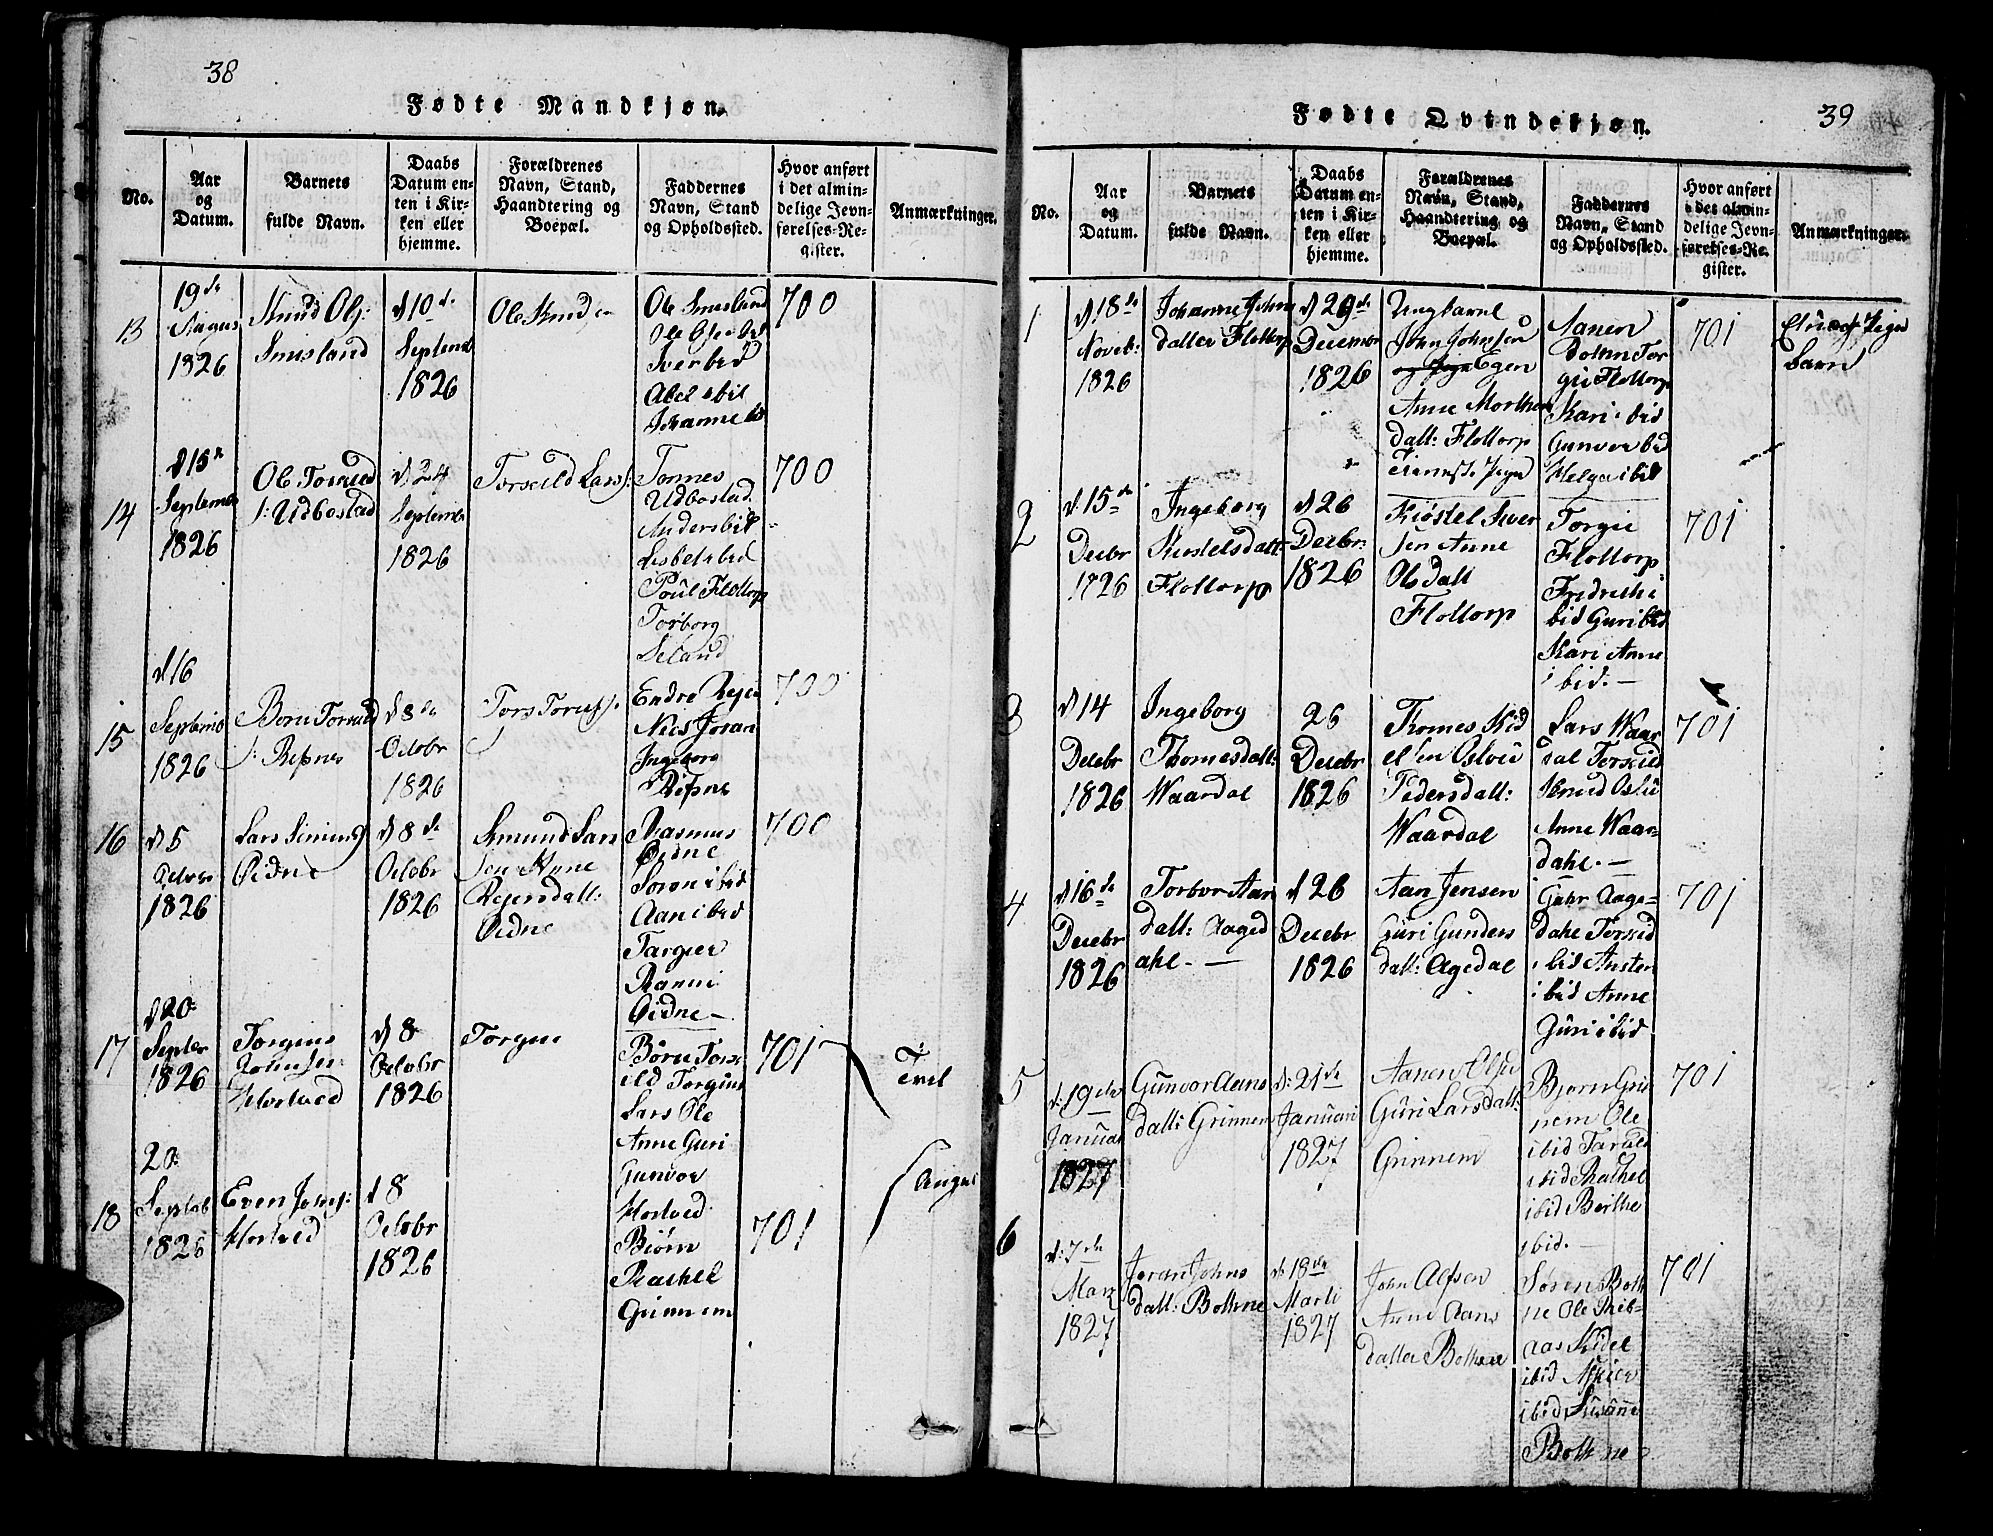 38
Fødte Mandkjøn.
No.
Aar
og
Datum.
Barnets
fulde Navn.
Daabs
Datum en-
ten i Kir-
ken eller
hjemme.
Forældrenes
Navn, Stand,
Haandtering og
Boepæl.
Faddernes
Navn, Stand
og Opholdssted.
Hvor anført
i det almin-
delige Jevn-
førelses-Re-
gister.
Anmærkninger.
13
19de
August
1826
Knud Ols:
Smusland
d 10de
Septemb
1826
Ole Knuds
Ole Smusland
Ole
Sverbid
Abel ibid
Johanne ibid
700
14
d 15de
Septembr
1826
Ole Torkield
s: Udbostad
d 24
Septembr
1826
Torkield Lars:
Tonnes
Udbostad
Anders ibid
Lisbet ibid
Poul Flottorp
Torborg
Seland
700
15
d 16
Septemb
1826
Børu Torkield
s: Refsnes
d 8de
Octobr
1826
Tors
Endre
Niels Joran
Ingeborg
Refsne
700
16
d 5
Octobr
1826
Lars
Øidne
d 8de
Octobr
1826
Smund Lars
sen Anne
Reiersdatt:
Øidne
Rasmus
Øidne
Søren ibid
Aan ibid
Targier
Ranni
Øidne
700
17
d 20
Septbr
1826
Torgius
Johnsen
Hortved
d 8
Octobr
1826
Torgiu
Børu Tork
ield Torgius
Lars Ole
Anne Guri
Gunvor
Hortved
701
18
20
Septeb
1826
Even Johns:
Hortved
d 8
Octobr
1826
Biørn
Rachel
Grinnem
701
39
Fødte Qvindekjøn.
No.
Aar
og
Datum.
Barnets
fulde Navn.
Daabs
Datum en-
ten i Kir-
ken eller
hjemme.
Forældrenes
Navn, Stand,
Haandtering og
Boepæl.
Faddernes
Navn, Stand
og Opholdssted.
Hvor anført
i det almin-
delige Jevn-
førelses-Re-
gister.
Anmærkninger.
1
d 18de
Noveb:
1826
Johanne John
datter Flottorp
d 29de
Decembr
1826
Ungkarl
John Johnsen
og Egen
Anne Morthen
datt: Flottorp
Tienest. Pige
Aanen
Torgie Flottorp
Kari ibid
Gunvor ibid
Helga ibid
701
Pige
barn
2
d: 15de
Decbr
1826
Ingeborg
Kiøstelsdatt:
Flottorp
d 26
Decbr:
1826
Kiøstel Siver
sen Anne
Olsdatt
Flottorp
Torgie
Flottorp
Fredrich i
bid Guri ibid
Kari Anne
ibid. —
701
3
d 14
Decebr
1826
Ingeborg
Thomesdatt:
Waardal
26
Decebr
1826
Thomes Kid
elsen Oslue
Pedersdatt:
Waardal
Lars Waar
dal Torkield
Knud Oslu
Anne Waar-
dahl. —
701
4
d 16de
Decebr
1826
Torbor Aan
datt: Aaged
ahl. —
d 26
Decebr
1826
Aan Jensen
Guri Gunders
datt: Agedal
Guhr Aage-
dahl Torkield
ibid Austen
ibid Anne
Guri ibid
701
5
d: 19de
Januar
1827
Gunvor Aans
datt: Grinnem
d: 21de
Januari
1827
Aanen Olsen
Guri Larsdatt:
Grinnem
Bjørn Grin
nem Ole
ibid Taruld
ibid Rachel
ibid Berthe
ibid. —
701
6
d: 7de
Marz
1827
Joran Johns
datt: Bothne
d: 18de
Marti
1827
John Alfsen
Anne Aans
datter Bothne
Søren Both
ne Ole Rib-
aas Kidel
ibid
ibid Susanne
Bothne
701